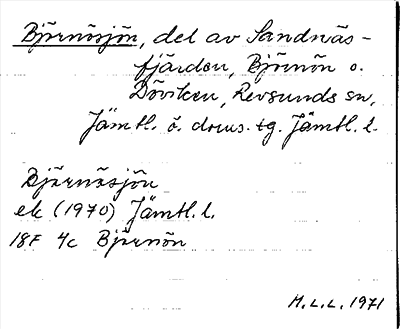 Björnösjön, del av Sandnäs-
fjärden, Björnön o.
Döviken, Revsunds sn,
Jämtl. ö. doms. tg. Jämtl. l.
Björnösjön
ek (1970) Jämtl. l.
18F 4c Björnön
H.L.L. 1971